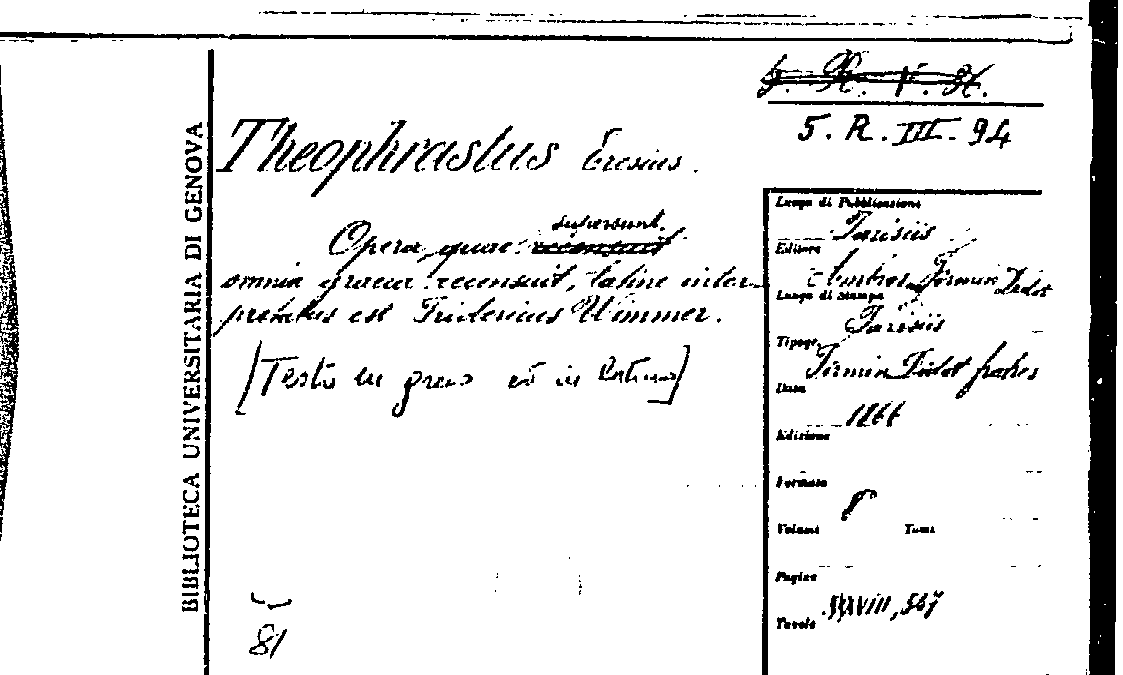 5. R. III. 94
BIBLIOTECA UNIVERSITARIA DI GENOVA
Theophrastus Eresius.
Opera, quae supersunt,
omnia graeca recensuit, latine inter-
pretatus est Fridericus Wimmer.
[Testo in greco ed in latino]
81
Luogo di Pubblicazione
Parisiis
Editore
Ambros. Firmin Didot
Luogo di Stampa
Parisiis
Tipogr.
Firmin Didot fratres
Data
1866
Edizione
Formato
8°
Volumi Tomi
Pagine
XXVIII, 567
Tavole